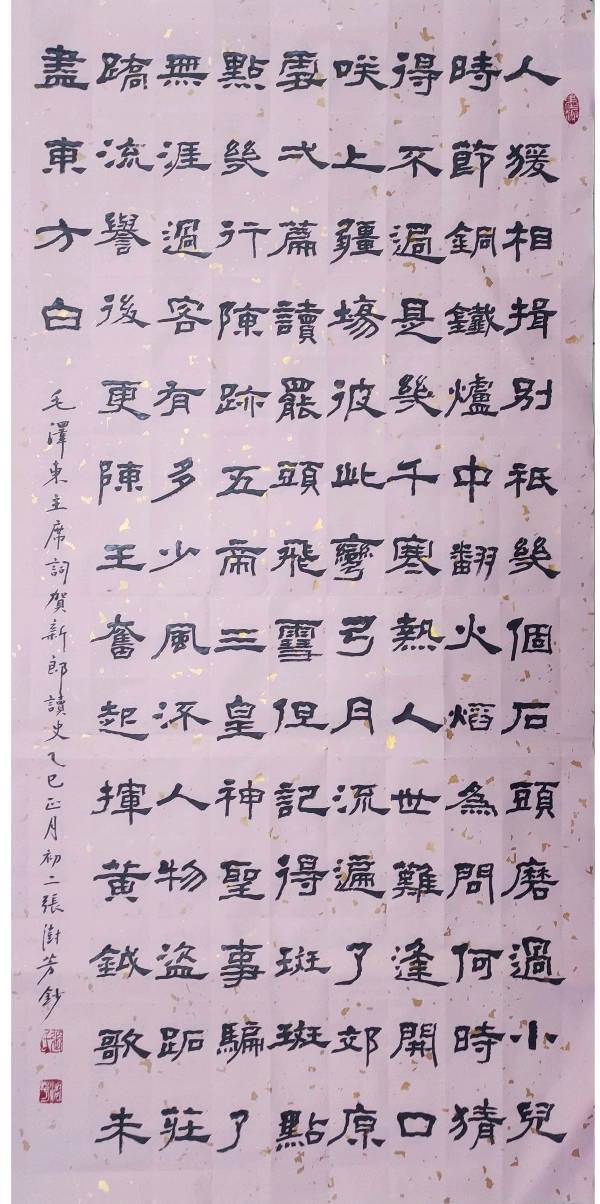 人猨相揖別祇幾個石頭磨過小兒
時節銅鐵爐中翻火焰為問何時猜
得不過是幾千寒熱人世難逢開口
咲上疆場彼此彎弓月流遍了郊原
血弌篇讀罷頭飛雪但記得斑斑點
點幾行陳跡五帝三皇神聖事騙了
無涯過客有多少風流人物盜跖莊
蹻流譽後更陳王奮起揮黃鉞歌未
盡東方白
毛澤東主席詞賀新郎讀史乙巳正月初二張澍芳鈔